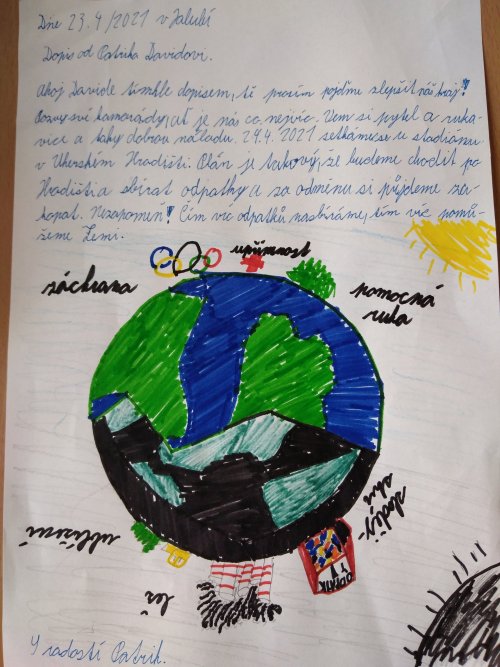 Dne 23.4/2021 v Jalubí
Dopis od Patrika Davidovi.
Ahoj Davide tímhle dopisem, tě prosím pojďme zlepšit náš kraj!
Pozvy své kamarády, ať je nás co nejvíc. Vem si pytel a ruka-
vice a taky dobrou náladu. 24.4. 2021 setkáme se u stadiónu
v Uherském Hradišti. Plán je takový, že budeme chodit po
Hradišti a sbírat odpatky a za odměnu si půjdeme za-
kopat. Nezapomeň! Čím víc odpatků nasbíráme, tím víc pomů-
žeme Zemi.
upřímnost
záchrana
pomocná
ruka
ublížení
zloději-
lež
V radostí Patrik.